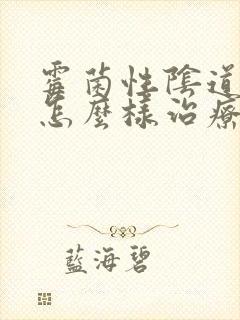 霉菌性陰道
怎麼樣治療
藍海碧